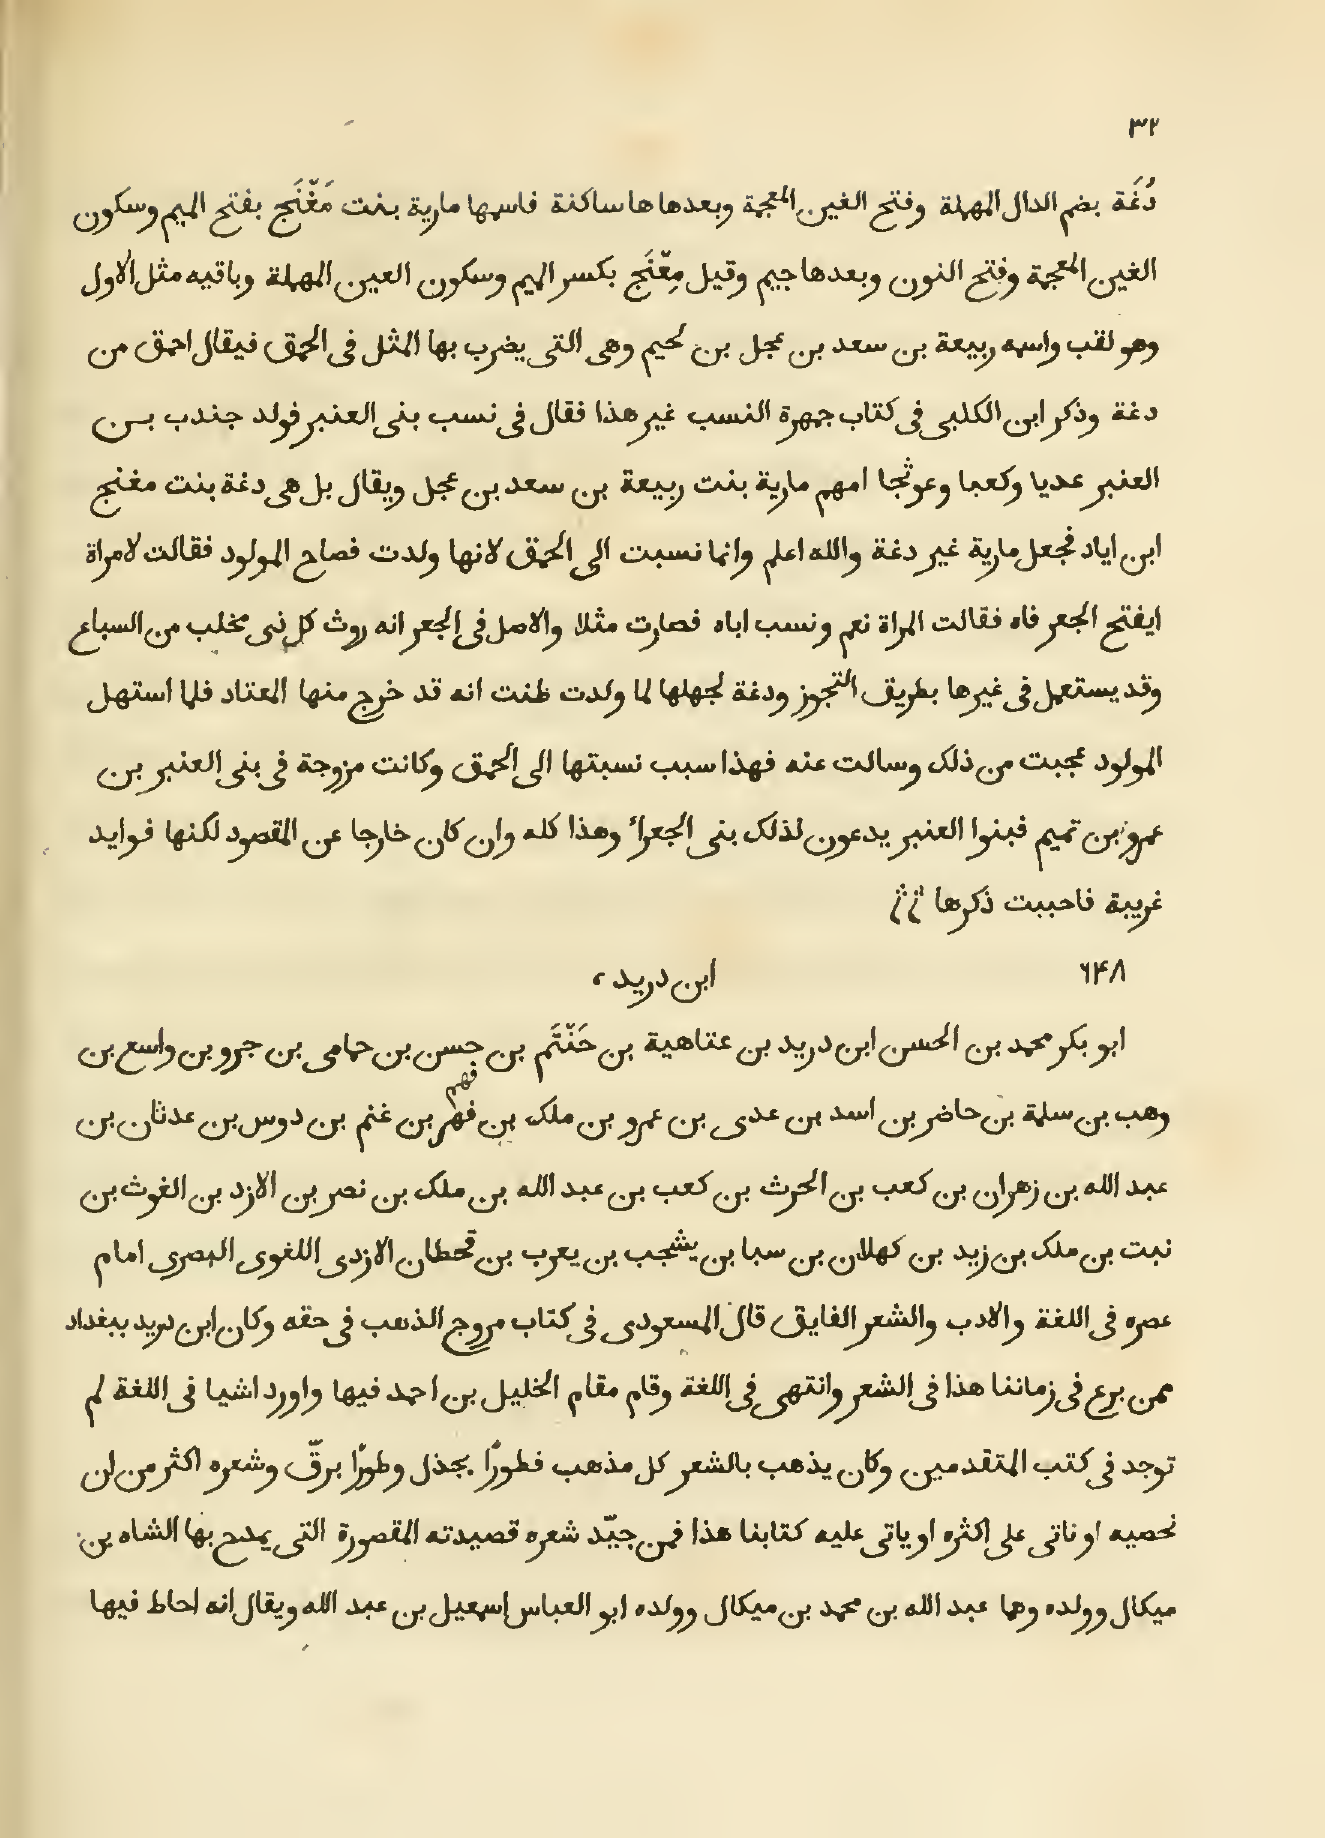 ٣٢
دُغَة بضم الدال المهملة وفتح الغين المعجمة وبعدها ها ساكنة فاسمها مارية بنت مَغْنَج بفتح الميم وسكون
الغين المعجمة وفتح النون وبعدها جيم وقيل مِعْنَج بكسر الميم وسكون العين المهملة وباقيه مثل الاول
وهو لقب واسمه ربيعة بن سعد بن عجل بن لحيم وهى التى يضرب بها المثل فى الحمق فيقال احمق من
دغة وذكر ابن الكلبى فى كتاب جمهرة النسب غير هذا فقال فى نسب بنى العنبر فولد جندب بن
العنبر عديا وكعبا وعوثجا امهم مارية بنت ربيعة بن سعد بن عجل ويقال بل هى دغة بنت مغنج
ابن اياد فجعل مارية غير دغة والله اعلم وانما نسبت الى الحمق لانها ولدت فصاح المولود فقالت لامراة
ايفتح الجعر فاه فقالت المراة نعم ونسب اباه فصارت مثلا والاصل فى الجعر انه روث كل ذى مخلب من السباع
وقد يستعمل فى غيرها بطريق التجوز ودغة لجهلها لما ولدت ظنت انه قد خرج منها المعتاد فلما استهل
المولود عجبت من ذلك وسالت عنه فهذا سبب نسبتها الى الحمق وكانت مزوجة فى بنى العنبر بن
عمرو بن تميم فبنوا العنبر يدعون لذلك بنى الجعراء وهذا كله وان كان خارجا عن المقصود لكنها فوايد
غريبة فاحببت ذكرها
٦٤٨ ابن دريد،
ابو بكر محمد بن الحسن ابن دريد بن عتاهية بن حَنْتَم بن حسن بن حمامى بن جرو بن واسع بن
وهب بن سلمة بن حاضر بن اسد بن عدى بن عمرو بن ملك بن فهر بن غنم بن دوس بن عدثان بن
فهم
عبد الله بن زهران بن كعب بن الحرث بن كعب بن عبد الله بن ملك بن نصر بن الازد بن الغوث بن
نبت بن ملك بن زيد بن كهلان بن سبا بن يشجب بن يعرب بن قحطان الازدى اللغوى البصرى امام
عصره فى اللغة والادب والشعر الفايق قال المسعودى فى كتاب مروج الذهب فى حقه وكان ابن دريد ببغداد
ممن برع فى زماننا هذا فى الشعر وانتهى فى اللغة وقام مقام الخليل بن احمد فيها واورد اشيا فى اللغة لم
توجد فى كتب المتقدمين وكان يذهب بالشعر كل مذهب فطورًا يجذل وطورًا برقّ وشعره اكثر من ان
نحصيه او ناتى على اكثره او ياتى عليه كتابنا هذا فمن جيّد شعره قصيدته المقصورة التى يمدح بها الشاه بن
ميكال وولده وهما عبد الله بن محمد بن ميكال وولده ابو العباس اسمعيل بن عبد الله ويقال انه احاط فيها